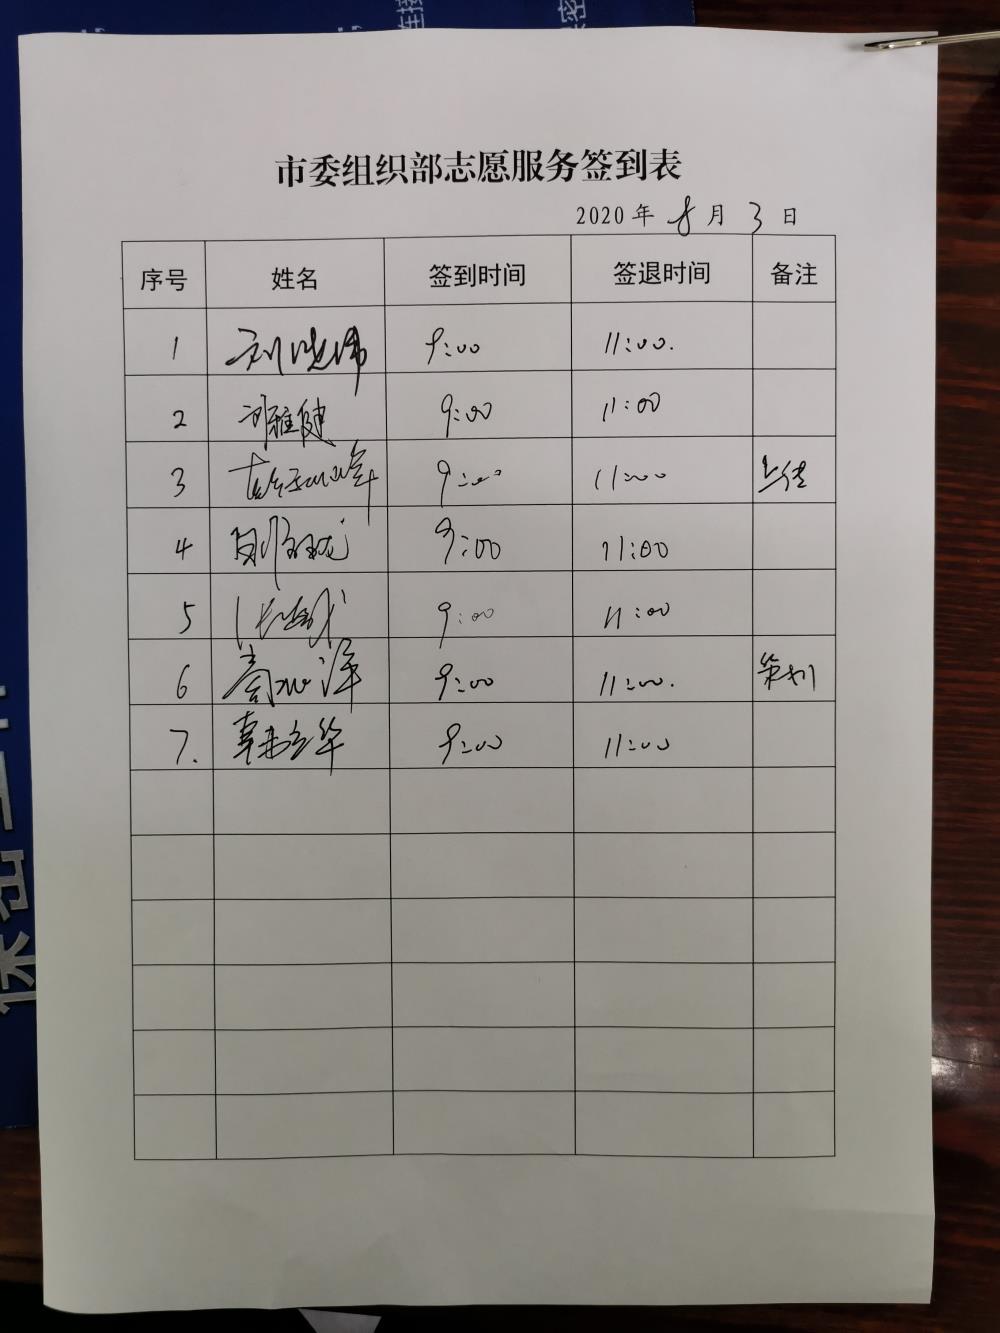 市委组织部志愿服务签到表
2020年 8月 3日
序号 姓名 签到时间 签退时间 备注
1 刘晓伟 9:00 11:00.
2 刘雅健 9:00 11:00
3 9:00 11:00 上传
4 9:00 11:00
5 9:00 11:00
6 9:00 11:00. 策划
7. 9:00 11:00
保密工作